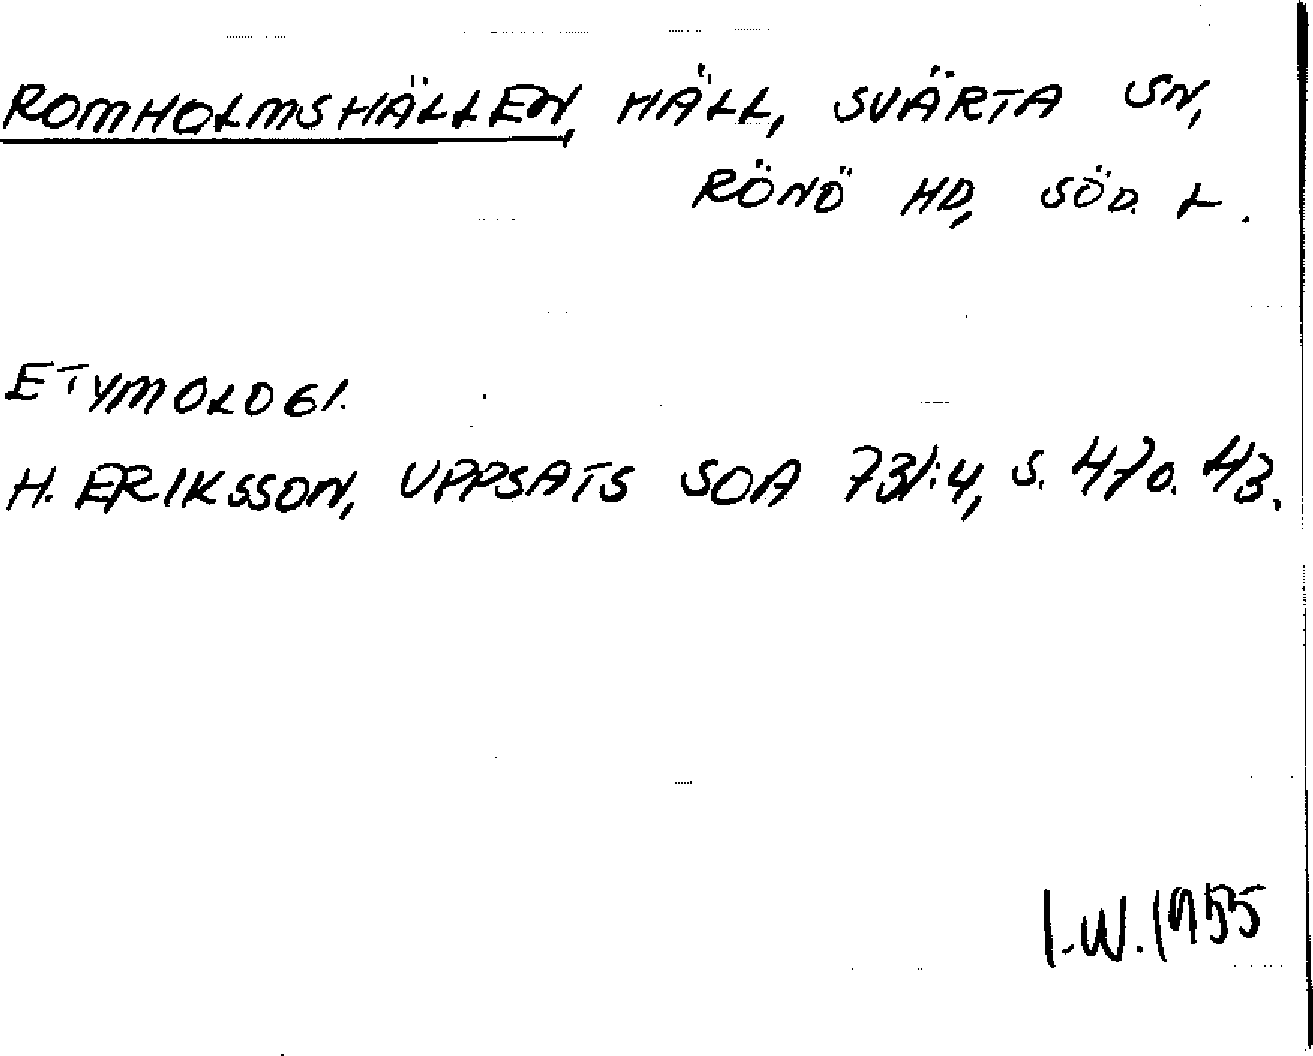 ROMHOLMSHÄLLEN, HÄLL, SVÄRTA SN,
RÖNÖ HD, SÖD. L.
ETYMOLOGI.
H. ERIKSSON, UPPSATS SOA 731:4, S. 41 O. 43.
I.W. 1955